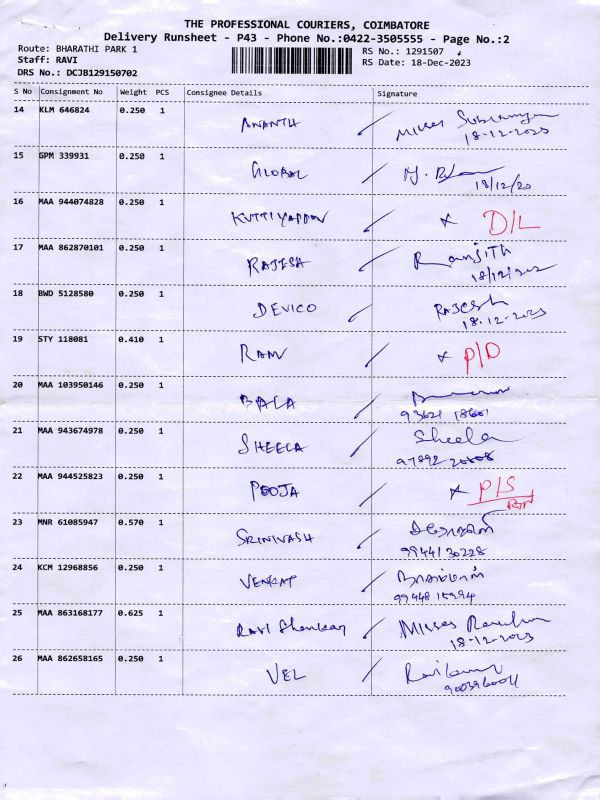 THE PROFESSIONAL COURIERS, COIMBATORE
Delivery Runsheet - P43 - Phone No.:0422-3505555 - Page No.:2
Route: BHARATHI PARK 1 RS No.: 1291507
Staff: RAVI RS Date: 18-Dec-2023
DRS No.: DCJB129150702
S No Consignment No Weight PCS Consignee Details Signature
14 KLM 646824 0.250 1 ANANTH
18-12-2023
15 GPM 339931 0.250 1 GLOBAL
18/12/20
16 MAA 944074828 0.250 1 KUTTIYAPPAN x D/L
17 MAA 862870101 0.250 1 RAJESH Ranjith
18/12/202
18 BWD 5128580 0.250 1 DEVICO RAJESH
18-12-2023
19 STY 118081 0.410 1 RAM x P/D
20 MAA 103950146 0.250 1 BALA
21 MAA 943674978 0.250 1 SHEELA Sheela
22 MAA 944525823 0.250 1 POOJA x P/S
23 MNR 61085947 0.570 1 SRINIVASH
9944130228
24 KCM 12968856 0.250 1 VENKAT
25 MAA 863168177 0.625 1 Ravi Shankar
18-12-2023
26 MAA 862658165 0.250 1 VEL